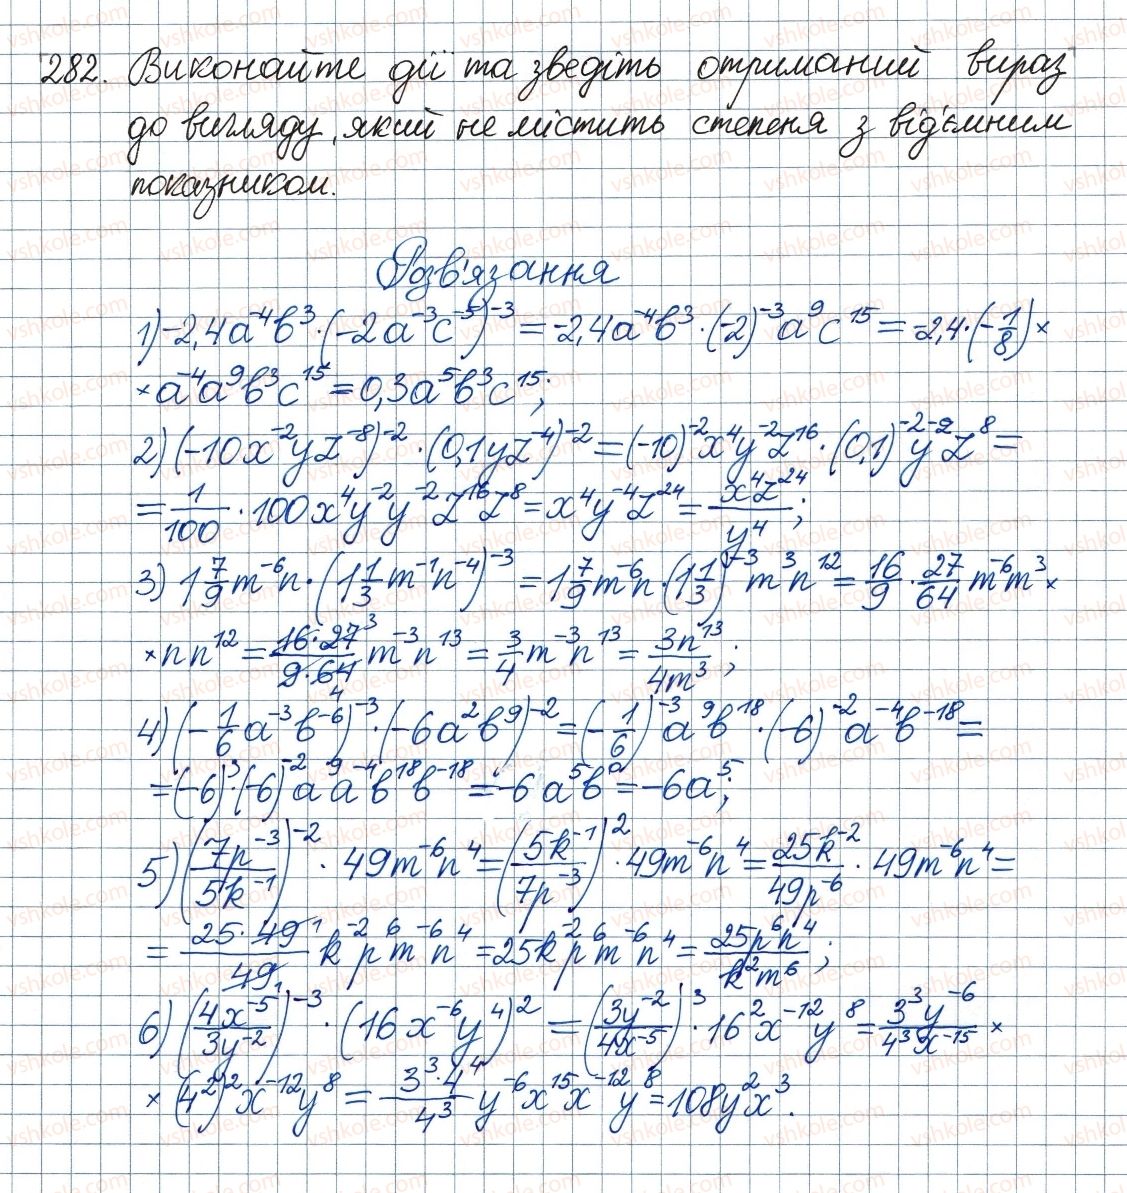 282. Виконайте дії та зведіть отриманий вираз
до вигляду, який не містить степеня з від'ємним
показником.
Розв'язання
1) -2,4a⁻⁴b³·(-2a⁻³c⁻⁵)⁻³ = -2,4a⁻⁴b³·(-2)⁻³a⁹c¹⁵ = -2,4·(-1/8)×
×a⁻⁴a⁹b³c¹⁵ = 0,3a⁵b³c¹⁵;
2) (-10x⁻²yz⁻⁸)⁻²·(0,1yz⁻⁴)⁻² = (-10)⁻²x⁴y⁻²z¹⁶·(0,1)⁻²y⁻²z⁸ =
= 1/100·100x⁴y⁻²y⁻²z¹⁶z⁸ = x⁴y⁻⁴z²⁴ = x⁴z²⁴/y⁴;
3) 1 7/9 m⁻⁶n·(1 1/3 m⁻¹n⁻⁴)⁻³ = 1 7/9 m⁻⁶n·(1 1/3)⁻³m³n¹² = 16/9·27/64 m⁻⁶m³×
×nn¹² = 16·27³/9·64₄ m⁻³n¹³ = 3/4 m⁻³n¹³ = 3n¹³/4m³;
4) (-1/6 a⁻³b⁻⁶)⁻³·(-6a²b⁹)⁻² = (-1/6)⁻³a⁹b¹⁸·(-6)⁻²a⁻⁴b⁻¹⁸ =
= (-6)³·(-6)⁻²a⁹a⁻⁴b¹⁸b⁻¹⁸ = -6a⁵b⁰ = -6a⁵;
5) (7p⁻³/5k⁻¹)⁻²·49m⁻⁶n⁴ = (5k⁻¹/7p⁻³)²·49m⁻⁶n⁴ = 25k⁻²/49p⁻⁶·49m⁻⁶n⁴ =
= 25·49¹/49₁ k⁻²p⁶m⁻⁶n⁴ = 25k⁻²p⁶m⁻⁶n⁴ = 25p⁶n⁴/k²m⁶;
6) (4x⁻⁵/3y⁻²)⁻³·(16x⁻⁶y⁴)² = (3y⁻²/4x⁻⁵)³·16²x⁻¹²y⁸ = 3³y⁻⁶/4³x⁻¹⁵×
×(4²)²x⁻¹²y⁸ = 3³·4⁴/4³ y⁻⁶x¹⁵x⁻¹²y⁸ = 108y²x³.